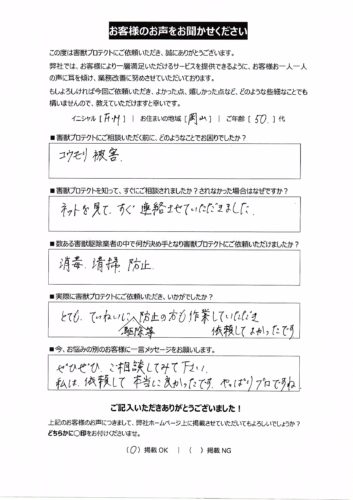 お客様のお声をお聞かせください
この度は害獣プロテクトにご依頼いただき、誠にありがとうございます。
弊社では、お客様により一層満足いただけるサービスを提供できるように、お客様お一人一人
の声に耳を傾け、業務改善に努めさせていただいております。
もしよろしければ今回ご依頼いただき、よかった点、嬉しかった点など、どのような些細なことでも
構いませんので、教えていただけますと幸いです。
イニシャル [ ] お住まいの地域 [ 岡山 ] ご年齢 [ 50. ] 代
■害獣プロテクトにご相談いただく前に、どのようなことでお困りでしたか？
コウモリ被害.
■害獣プロテクトを知って、すぐにご相談されましたか？されなかった場合はなぜですか？
ネットを見て、すぐ連絡させていただきました.
■数ある害獣駆除業者の中で何が決め手となり害獣プロテクトにご依頼いただけましたか？
消毒、清掃、防止、
■実際に害獣プロテクトにご依頼いただき、いかがでしたか？
とても、ていねいに、防止の方も作業していただき
駆除等 依頼してよかったです
■今、お悩みの別のお客様に一言メッセージをお願いします。
ぜひぜひ、ご相談してみて下さい。
私は、依頼して本当に良かったです、やっぱりプロですね.
ご記入いただきありがとうございました！
上記のお客様のお声につきまして、弊社ホームページ上に掲載させていただいてもよろしいでしょうか？
どちらかに〇印をお付けくださいませ。
(〇) 掲載 OK ｜ ( ) 掲載 NG